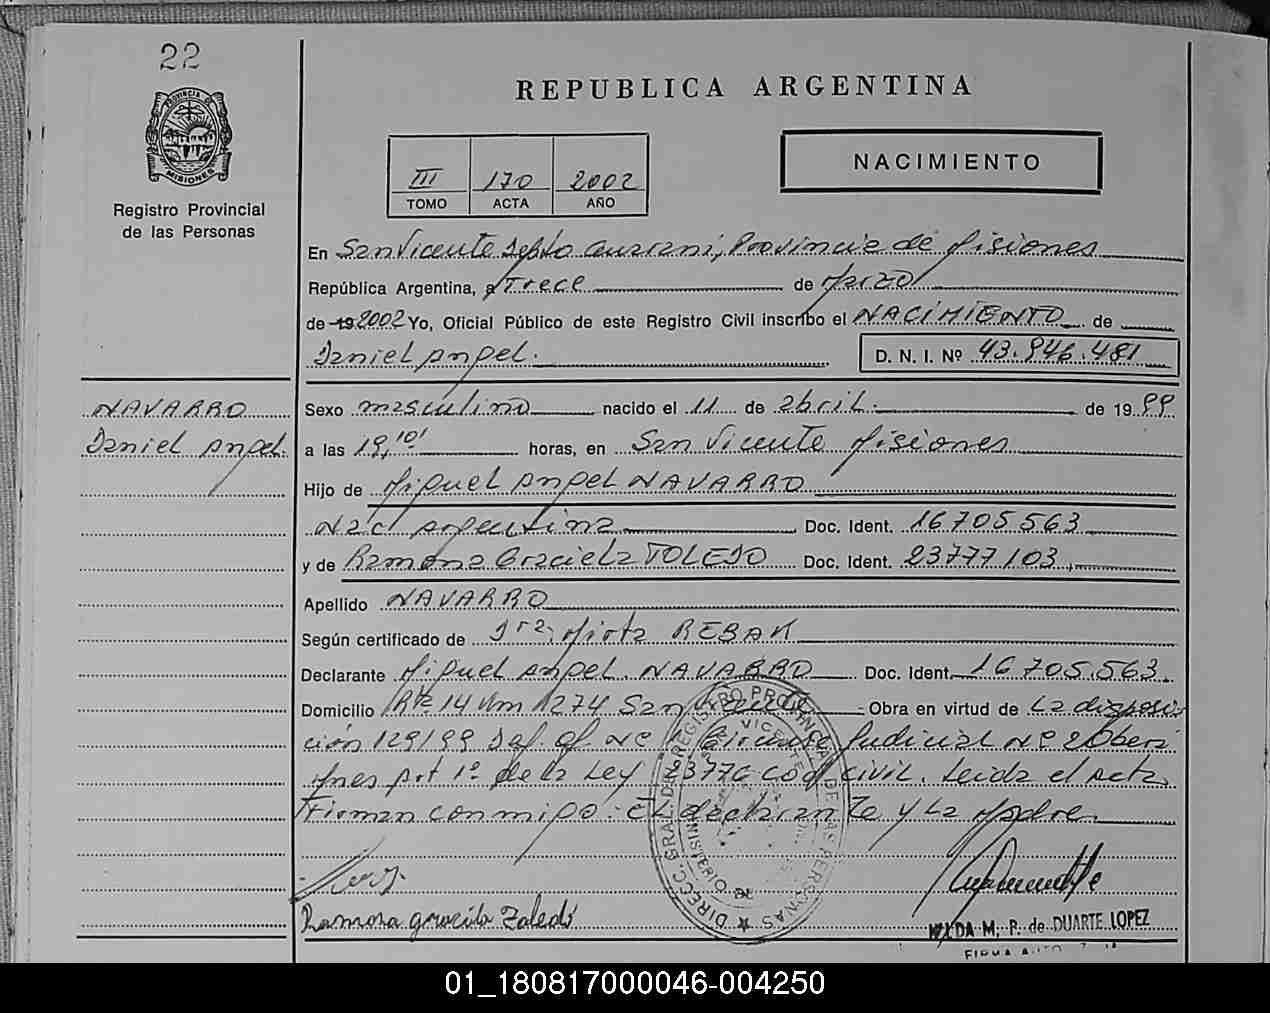 22
PROVINCIA DE
MISIONES
Registro Provincial
de las Personas
REPUBLICA ARGENTINA
III 170 2002
TOMO ACTA AÑO
NACIMIENTO
En San Vicente Depto Guarani, Provincia de Misiones
República Argentina, a Trece de Marzo
de 19 2002 Yo, Oficial Público de este Registro Civil inscribo el NACIMIENTO de
Daniel Angel. D. N. I. Nº 43.946.481
NAVARRO
Daniel Angel.
Sexo masculino nacido el 11 de abril. de 1999
a las 19,10' horas, en San Vicente Misiones
Hijo de Miguel Angel NAVARRO
Nac argentina Doc. Ident. 16705563
y de Ramona Graciela TOLEDO Doc. Ident. 23777103
Apellido NAVARRO
Según certificado de Dra. Mirta REBAK
Declarante Miguel Angel. NAVARRO Doc. Ident. 16.705.563
Domicilio Rta 14 Km 1274 San Vicente Obra en virtud de La disposi
ción 129/99 Def. of Nº Judicial Nº 2 Obera
Mnes Art 1º de la Ley 3776 cod civil. Leida el acta
Firman conmigo: el declarante y La Madre.
DIRECC. GRAL. DEL REGISTRO PROVINCIAL DE LAS PERSONAS
SAN VICENTE
MINISTERIO DE
Ramona graciela Toledo
M. P. de DUARTE LOPEZ
01_180817000046-004250